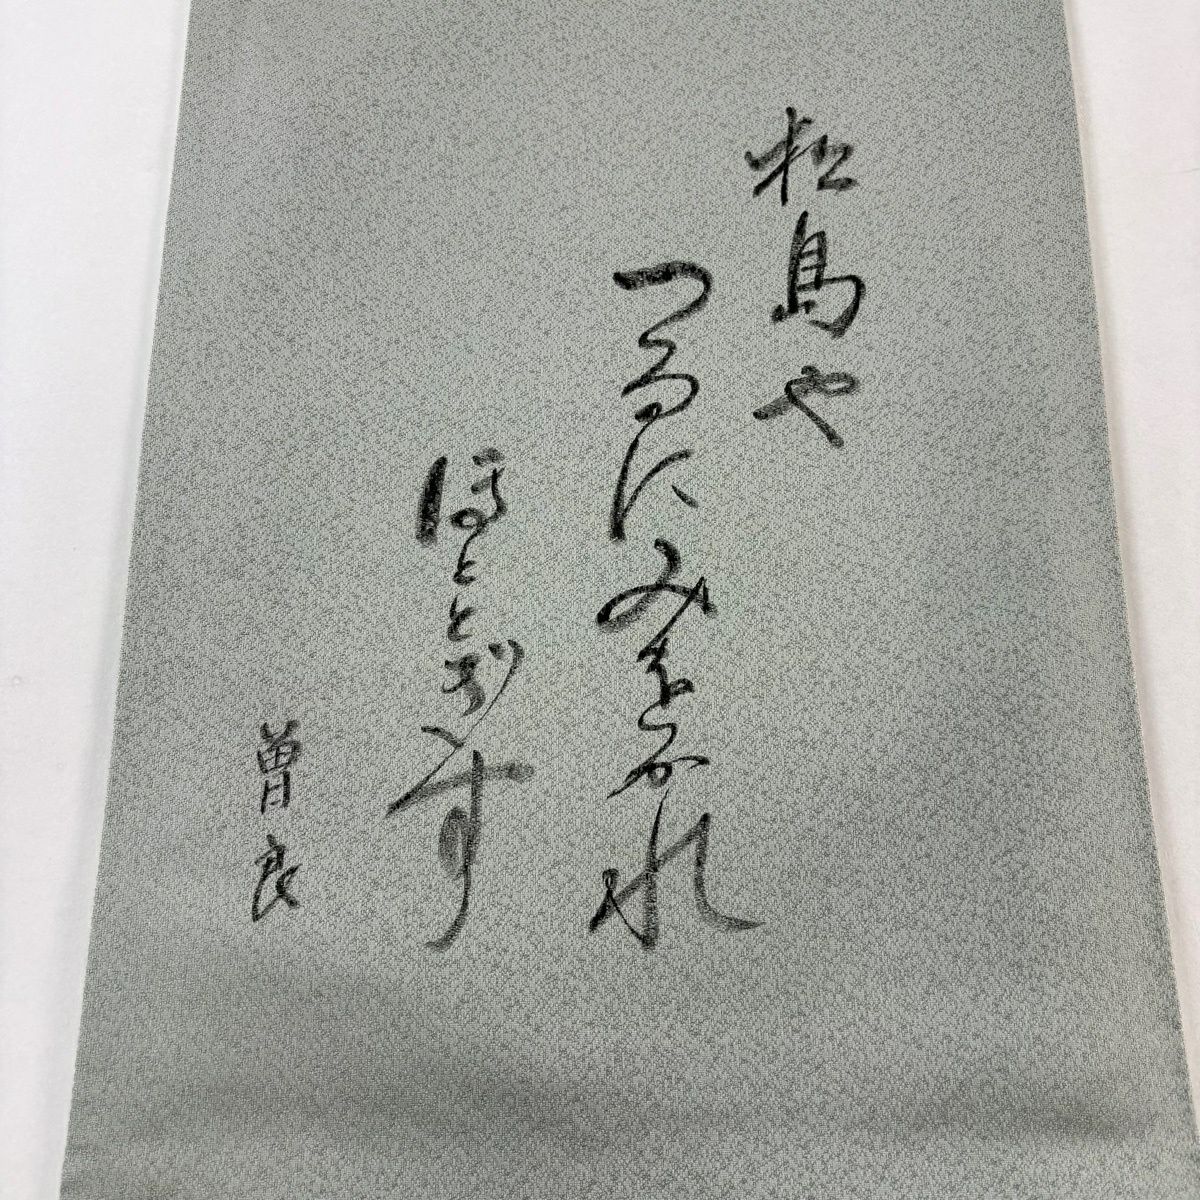 松島や
つるにみをかれ
ほととぎす
曽良